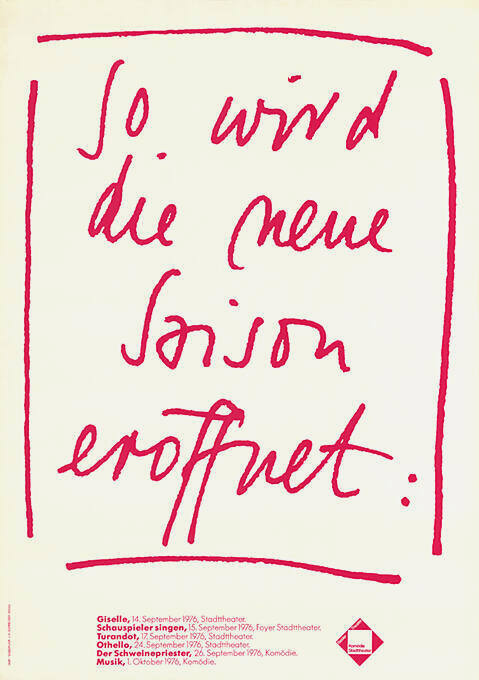 So wird
die neue
Saison
eroffnet:
Giselle, 14. September 1976, Stadttheater.
Schauspieler singen, 15. September 1976, Foyer Stadttheater.
Turandot, 17. September 1976, Stadttheater.
Othello, 24. September 1976, Stadttheater.
Der Schweinepriester, 26. September 1976, Komödie.
Musik, 1. Oktober 1976, Komödie.
Komödie
Stadttheater